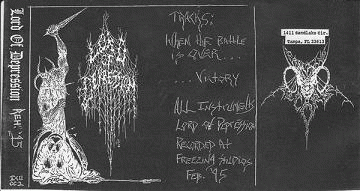 Lord Of Depression
Reh: '95
LORD
OF
DEPRESSION
TRACKS:
WHEN THE BATTLE
IS OVER...
...VICTORY
ALL INSTRUMENTS
LORD OF DEPRESSION
RECORDED AT
FREEZING STUDIOS
FEB. '95
1411 Sandlake Cir.
Tampa, FL 33613